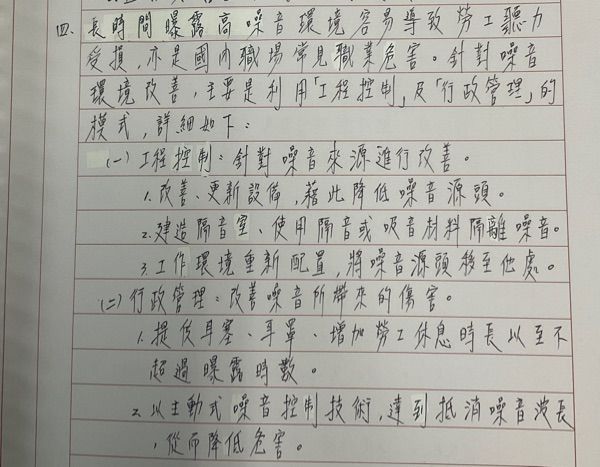 四、長時間曝露高噪音環境容易導致勞工聽力
受損,亦是國內職場常見職業危害。針對噪音
環境改善,主要是利用「工程控制」及「行政管理」的
模式,詳細如下:
(一)工程控制:針對噪音來源進行改善。
1.改善、更新設備,藉此降低噪音源頭。
2.建造隔音室、使用隔音或吸音材料隔離噪音。
3.工作環境重新配置,將噪音源頭移至他處。
(二)行政管理:改善噪音所帶來的傷害。
1.提供耳塞、耳罩、增加勞工休息時長以至不
超過曝露時數。
2.以主動式噪音控制技術,達到抵消噪音波長
,從而降低危害。